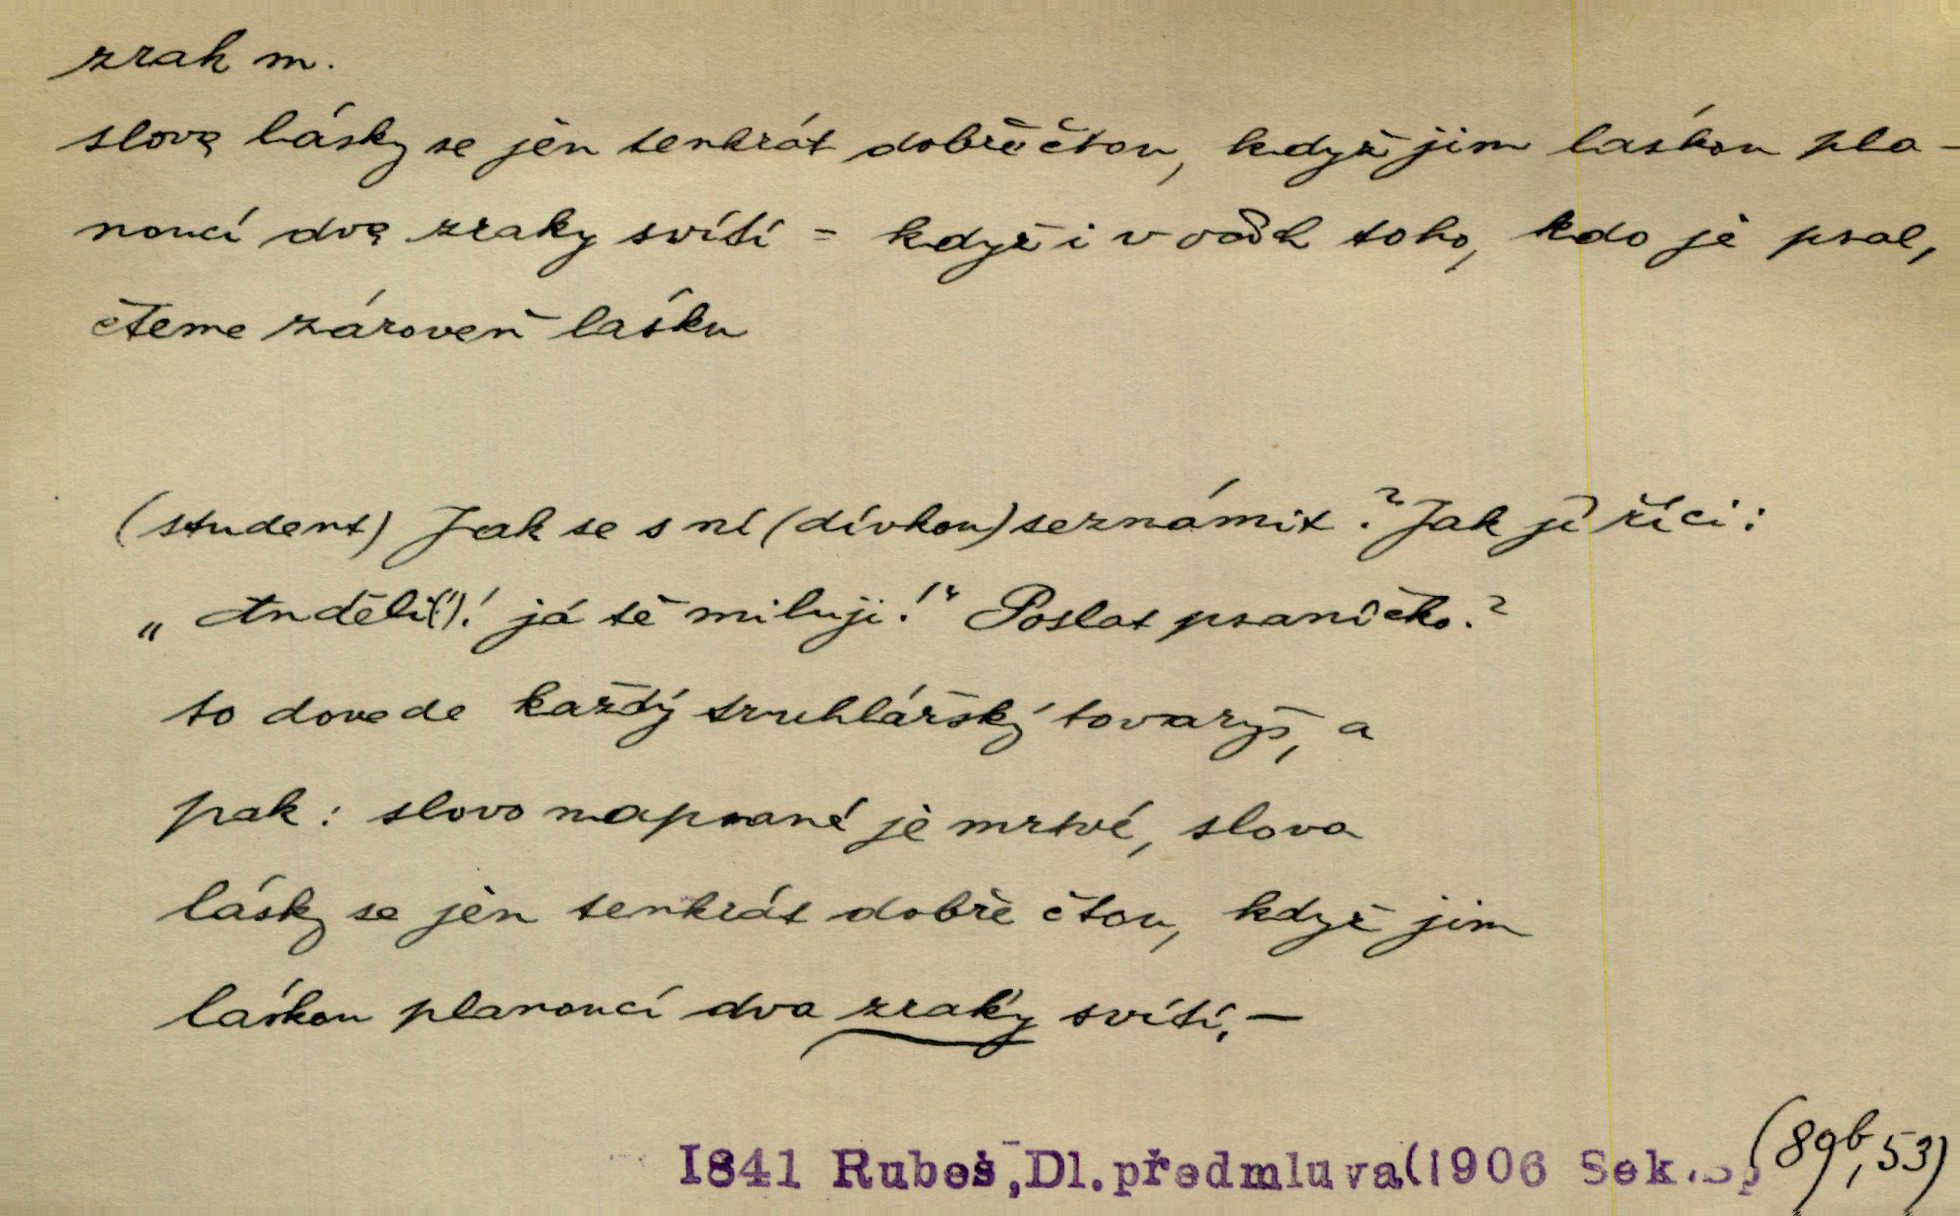 zrak m.
slova lásky se jen tenkrát dobře čtou, když jim láskou pla-
noucí dva zraky svítí = když i v očích toho, kdo je psal,
čteme zároveň lásku
(student) Jak se s ní (dívkou) seznámit? Jak jí říci:
„Anděli(!)! já tě miluji!" Poslat psaníčko?
to dovede každý truhlářský tovaryš, a
pak: slovo napsané je mrtvé, slova
lásky se jen tenkrát dobře čtou, když jim
láskou planoucí dva zraky svítí. —
1841 Rubeš, Dl. předmluva (1906 Sek. (89b, 53)